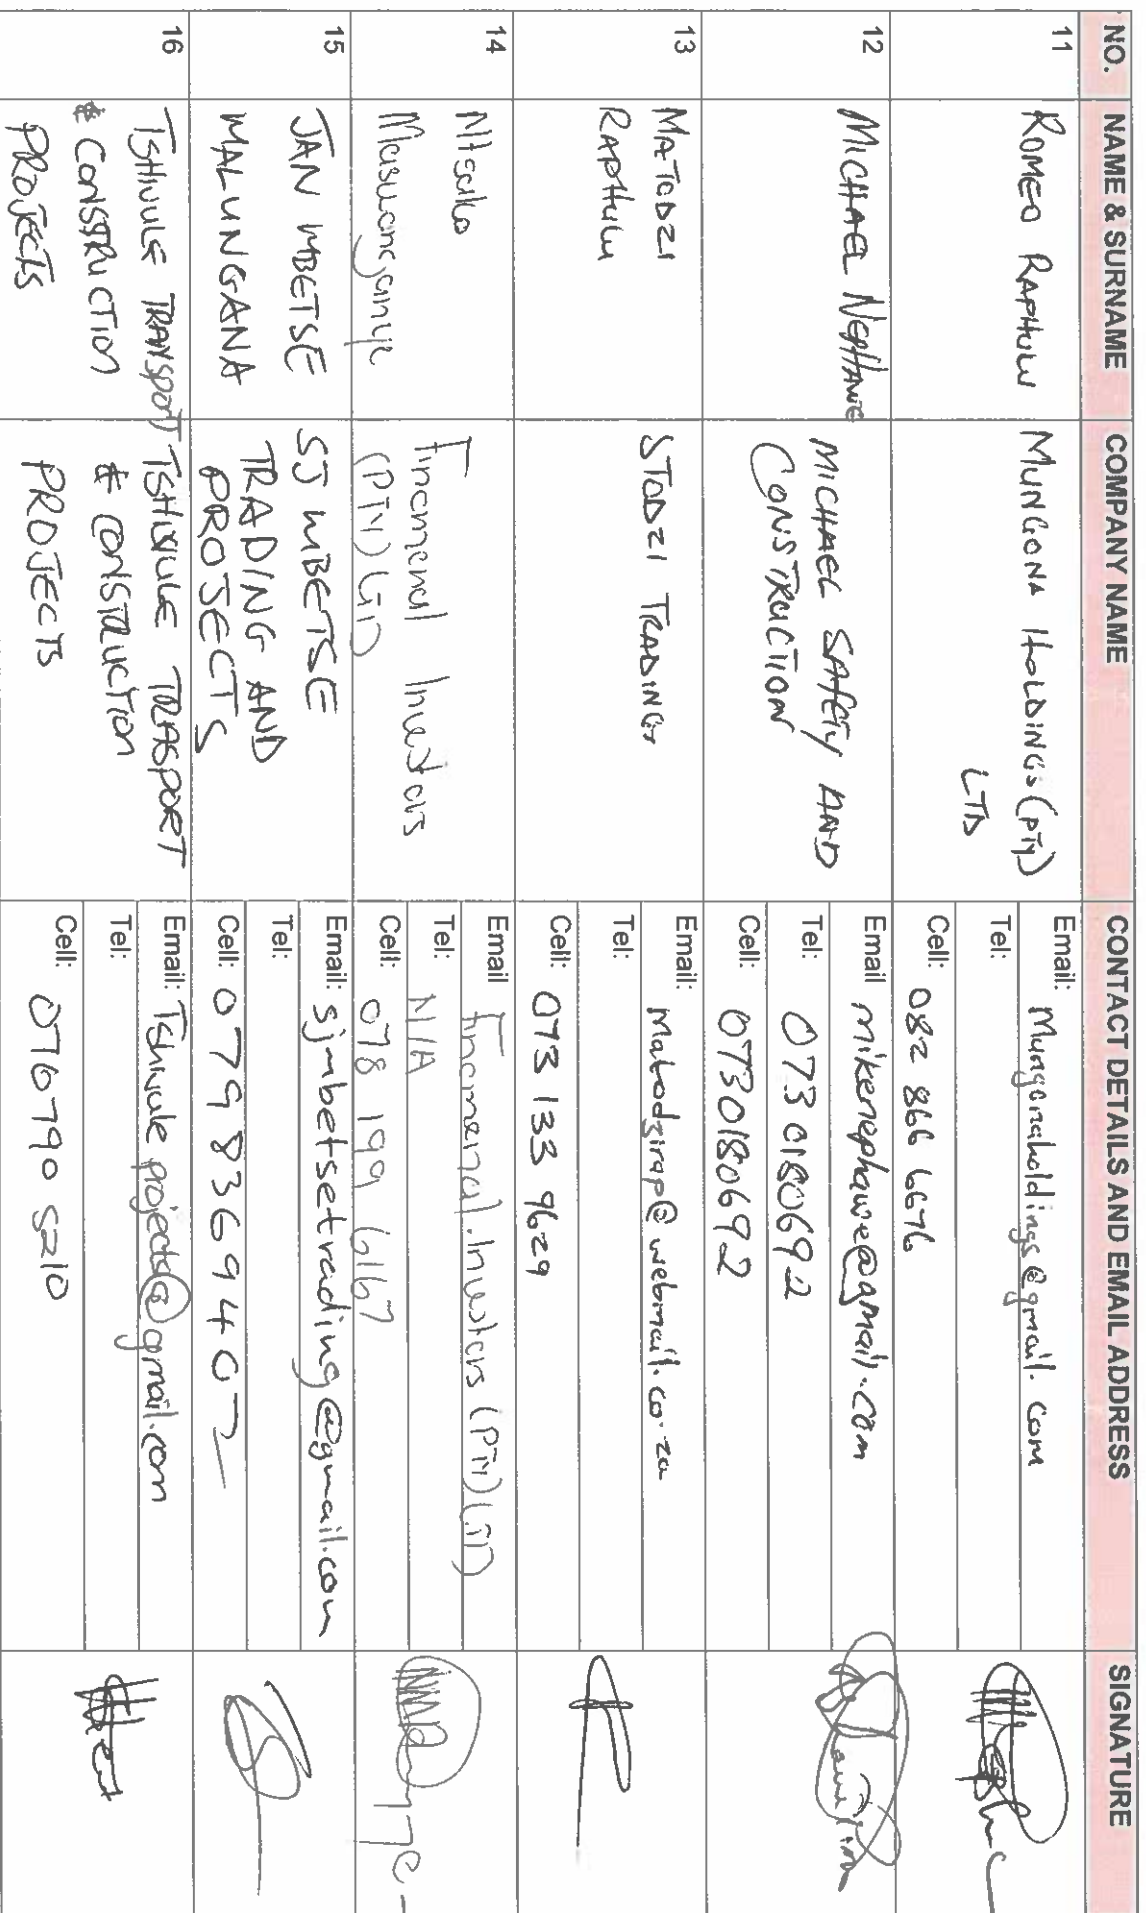 NO. NAME & SURNAME COMPANY NAME CONTACT DETAILS AND EMAIL ADDRESS SIGNATURE
11 ROMEO RAPHULU MUNGONA HOLDINGS (PTY)
LTD
Email: Mungonaholdings@gmail.com
Tel:
Cell: 082 866 6676
12 MICHAEL NEPHAWE MICHAEL SAFETY AND
CONSTRUCTION
Email mikenephawe@gmail.com
Tel: 073 0180692
Cell: 0730180692
13 MATODZI
RAPHULU
STODZI TRADING
Email: Matodzirap@webmail.co.za
Tel:
Cell: 073 133 9629
14 Ntsako
Masuanganye
Finemenal Investors
(PTY) LTD
Email Finemenal.Investors (PTY) LTD
Tel: N/A
Cell: 078 199 6167
15 JAN MBETSE
MALUNGANA
SJ MBETSE
TRADING AND
PROJECTS
Email: sjmbetsetrading@gmail.com
Tel:
Cell: 0798369407
16 TSHIVULE TRANSPORT
& CONSTRUCTION
PROJECTS
TSHIVULE TRASPORT
& CONSTRUCTION
PROJECTS
Email: Tshivule projects@gmail.com
Tel:
Cell: 0716790 5210